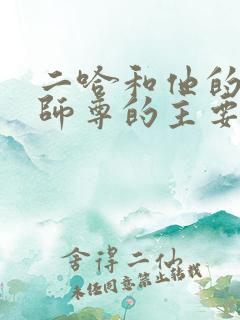 二哈和他的
師尊的主要
舍得二仙
未经同意禁止转载